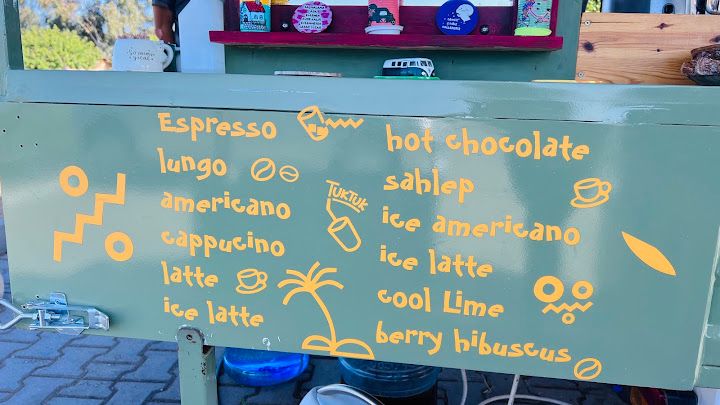 Espresso
lungo
americano
cappucino
latte
ice latte
TUKTUK
hot chocolate
sahlep
ice americano
ice latte
cool Lime
berry hibuscus